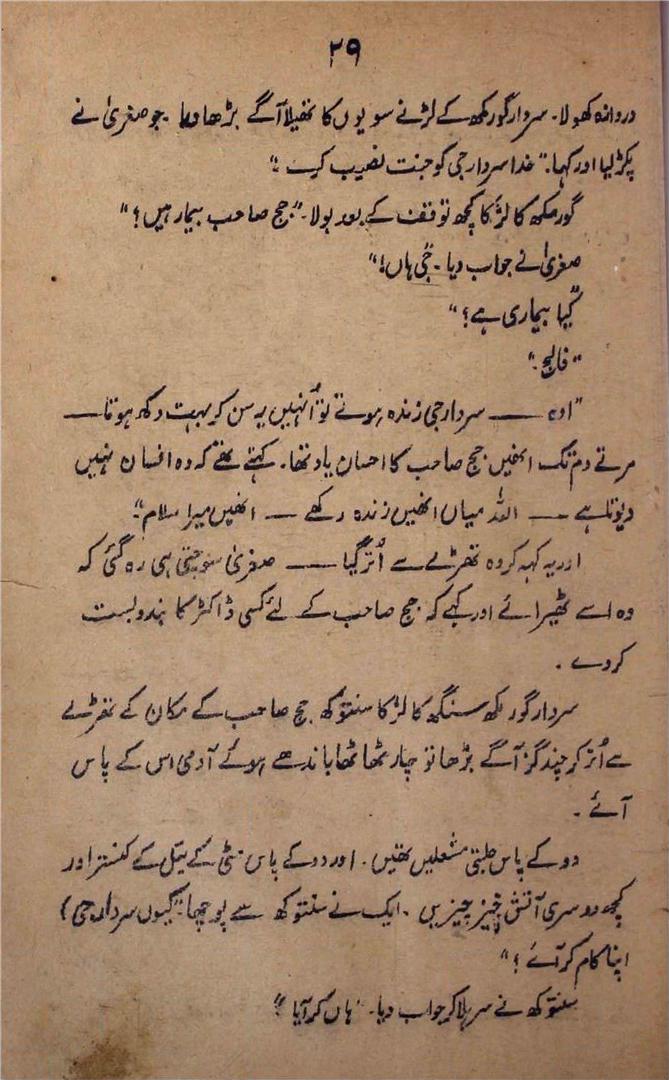 ۲۹
دروازہ کھولا۔ سردار گورمکھ کے لڑنے سویوں کا تھیلا آگے بڑھا دیا۔ جو صغریٰ نے
پکڑ لیا اور کہا۔ "خدا سردار جی کو جنت نصیب کرے"
گورمکھ کا لڑکا کچھ توقف کے بعد بولا۔ "جج صاحب بیمار ہیں؟"
صغریٰ نے جواب دیا۔ "جی ہاں!"
"کیا بیماری ہے؟"
"فالج۔"
"اوہ —— سردار جی زندہ ہوتے تو اُنہیں یہ سن کر بہت دکھ ہوتا ——
مرتے دم تک انھیں جج صاحب کا احسان یاد تھا۔ کہتے تھے کہ وہ افسان نہیں
دیوتا ہے — اللہ میاں انھیں زندہ رکھے — انھیں میرا سلام"
اور یہ کہہ کر وہ تھڑے سے اُتر گیا —— صغریٰ سوچتی ہی رہ گئی کہ
وہ اسے ٹھیرائے اور کہے کہ جج صاحب کے لئے کسی ڈاکٹر کا بندوبست
کردے۔
سردار گورمکھ سنگھ کا لڑکا سنتوکھ جج صاحب کے مکان کے تھڑے
سے اُتر کر چند گز آگے بڑھا تو چار ٹھاٹھا باندھے ہوئے آدمی اس کے پاس
آئے۔
دو کے پاس جلتی مشعلیں تھیں۔ اور دو کے پاس مٹی کے تیل کے کنستر اور
کچھ دوسری آتش خیز چیزیں۔ ایک نے سنتوکھ سے پوچھا: "کیوں سردار جی)
اپنا کام کر آئے؟"
سنتوکھ نے سر ہلا کر جواب دیا۔ "ہاں کر آیا"